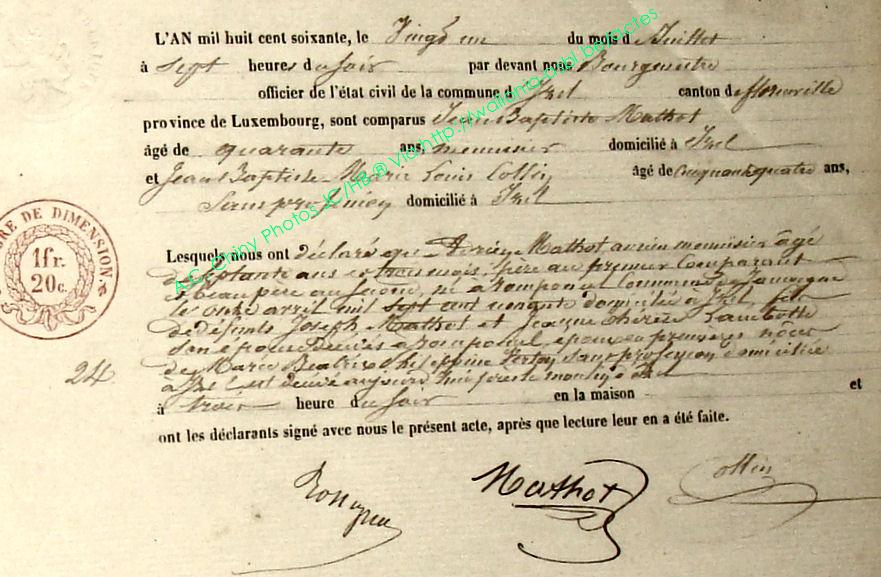 L'AN mil huit cent soixante, le Vingt un du mois d e Juillet
à Sept heures d u Soir par devant nous Bourgmestre
officier de l'état civil de la commune d' Izel canton d e florenville
province de Luxembourg, sont comparus Jean Baptiste Mathot
âgé de quarante ans, menuisier domicilié à Izel
et Jean Baptiste Marie Louis Collin âgé de Cinquante quatre ans,
Sans profession domicilié à Izel
Lesquels nous ont déclaré que Mathot ancien menuisier âgé
de septante ans et trois mois, père au premier Comparant
et beau père au Second, né à Romponcel Commune de Jamoigne
le onze avril mil Sept cent nonante domicilié à Izel, fils
de défunts Joseph Mathot et Jeanne
Son épouse décédés à Romponcel, époux en premières nôces
de Marie Sans profession domiciliée
à Izel est décédé aujourd'hui
24
à trois heure d u Soir en la maison et
ont les déclarants signé avec nous le présent acte, après que lecture leur en a été faite.
Mathot Collin
BRE DE DIMENSION
1fr.
20c.
A.C. Chiny Photos JC/HB ® Via http://wallonia-bibl.be/actes